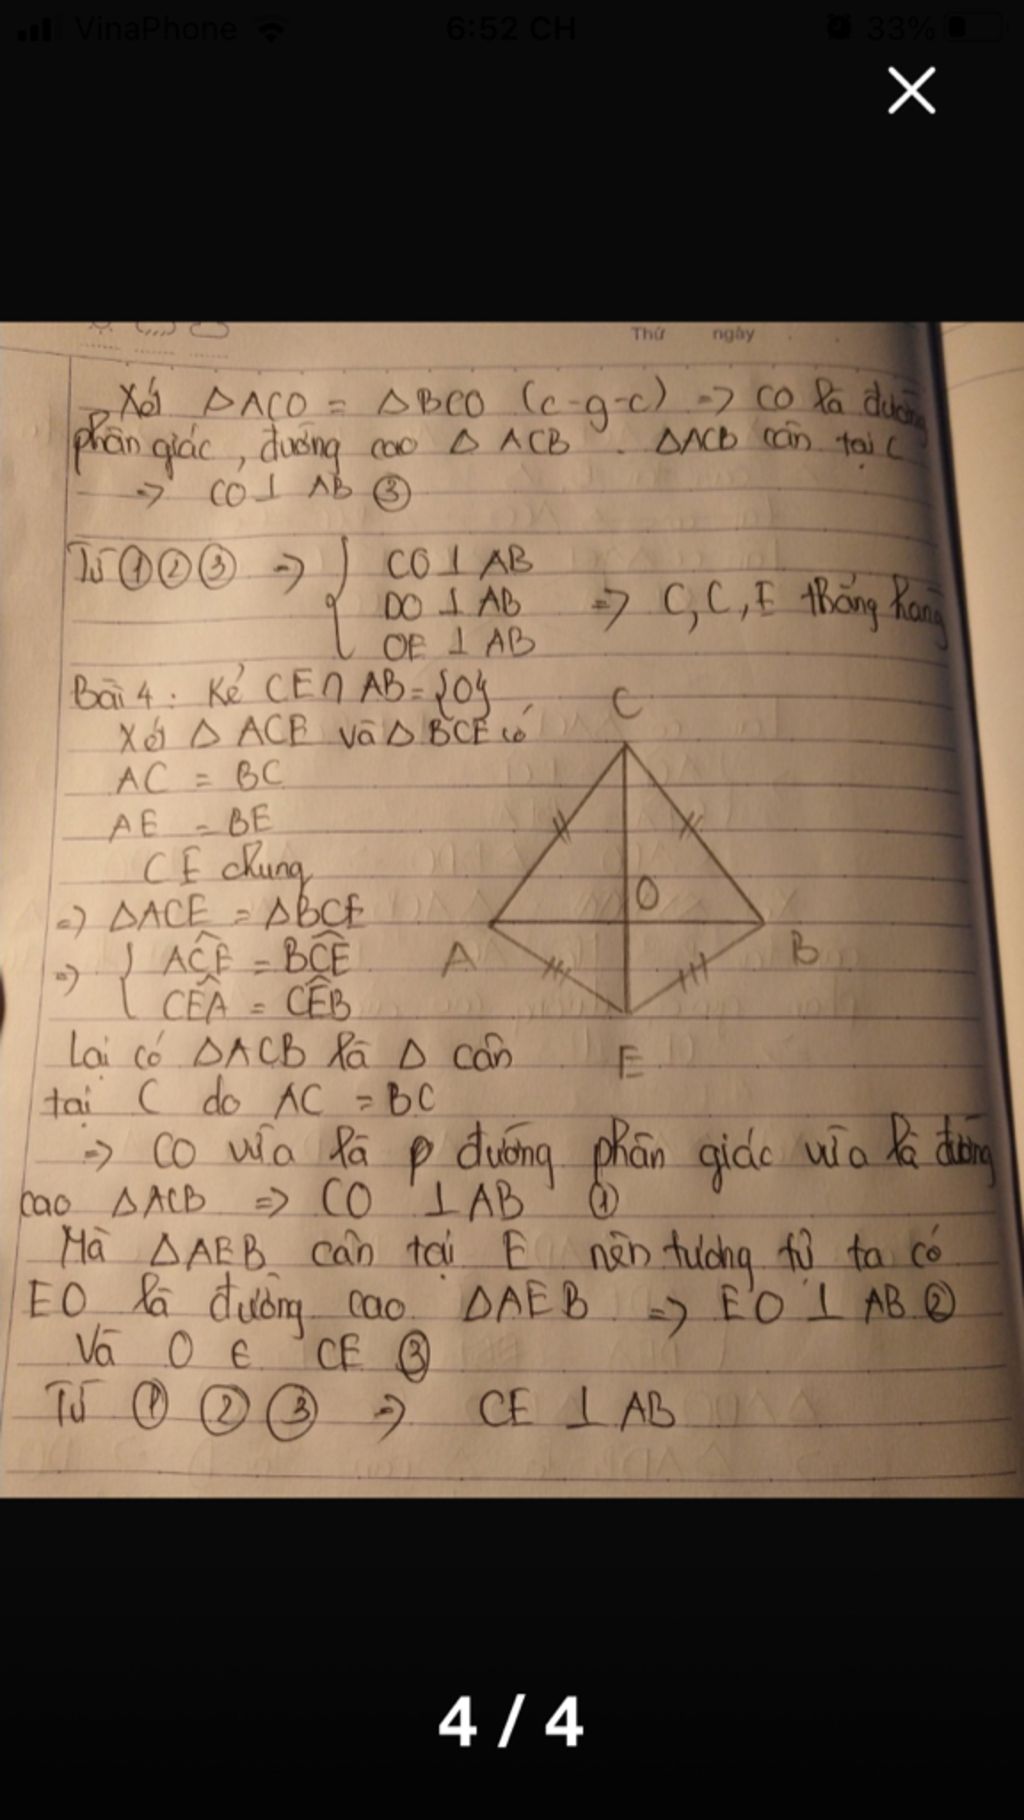 VinaPhone 6:52 CH 33%
Thứ ngày
Xét ΔACO = ΔBCO (c-g-c) => CO là đường
phân giác, đường cao Δ ACB. ΔACB cân tại C
=> CO ⊥ AB ③
Từ ① ② ③ => { CO ⊥ AB
DO ⊥ AB => C, C, E thẳng hàng
OE ⊥ AB
Bài 4: Kẻ CE ∩ AB = {O}
Xét Δ ACE và Δ BCE có
AC = BC
AE = BE
CE chung
=> ΔACE = ΔBCE
=> { AĈE = BĈE
CÊA = CÊB
C
O
A
B
E
Lại có ΔACB là Δ cân
tại C do AC = BC
=> CO vừa là p đường phân giác vừa là đường
cao ΔACB => CO ⊥ AB ①
Mà ΔAEB cân tại E nên tương tự ta có
EO là đường cao ΔAEB => EO ⊥ AB ②
Và O ∈ CE ③
Từ ① ② ③ => CE ⊥ AB
4 / 4